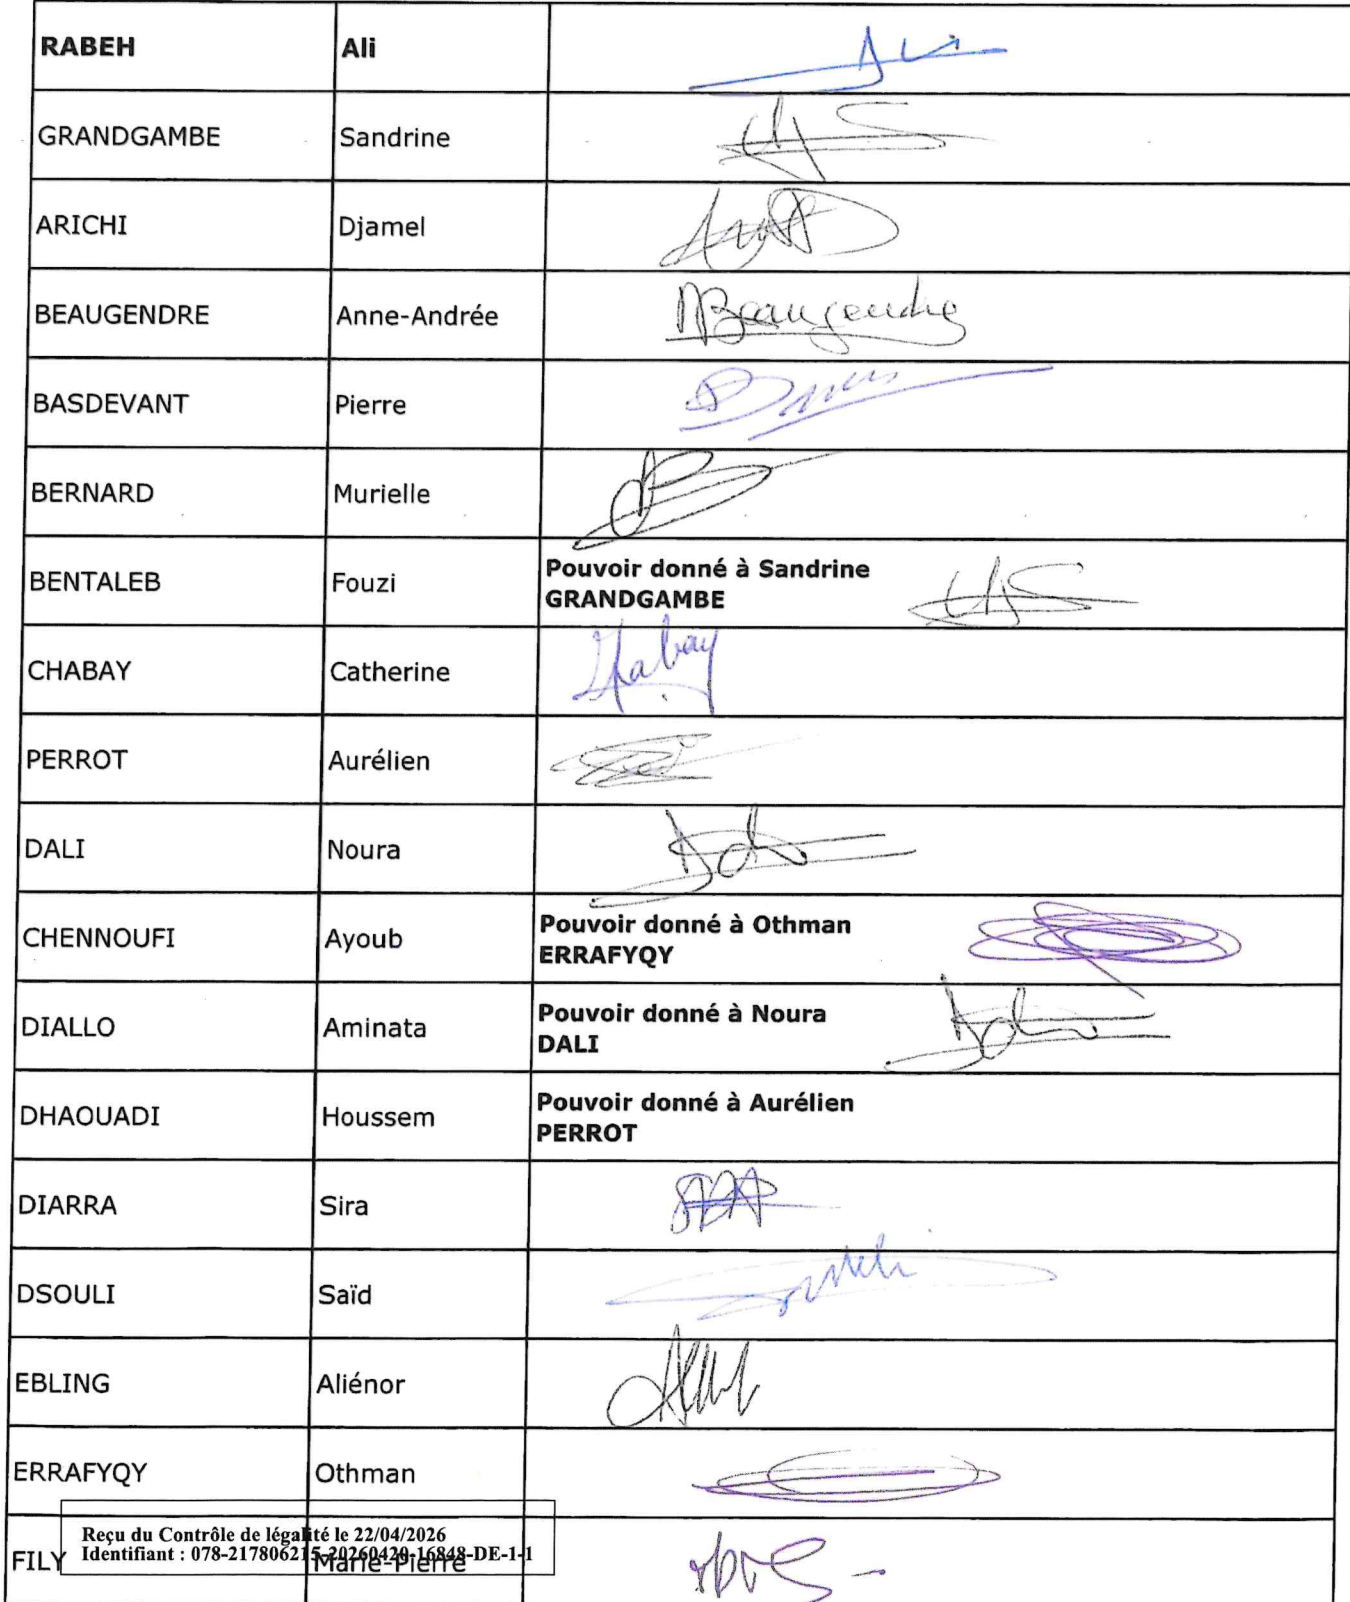 RABEH Ali
GRANDGAMBE Sandrine
ARICHI Djamel
BEAUGENDRE Anne-Andrée Beaugendre
BASDEVANT Pierre
BERNARD Murielle
BENTALEB Fouzi Pouvoir donné à Sandrine
GRANDGAMBE
CHABAY Catherine Chabay
PERROT Aurélien
DALI Noura
CHENNOUFI Ayoub Pouvoir donné à Othman
ERRAFYQY
DIALLO Aminata Pouvoir donné à Noura
DALI
DHAOUADI Houssem Pouvoir donné à Aurélien
PERROT
DIARRA Sira
DSOULI Saïd
EBLING Aliénor
ERRAFYQY Othman
Reçu du Contrôle de légalité le 22/04/2026
Identifiant : 078-217806215-20260420-16848-DE-1-1
FILY Marie-Pierre